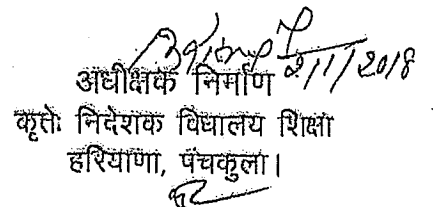 2/1/2018
अधीक्षक निर्माण
कृतेः निदेशक विद्यालय शिक्षा
हरियाणा, पंचकुला।